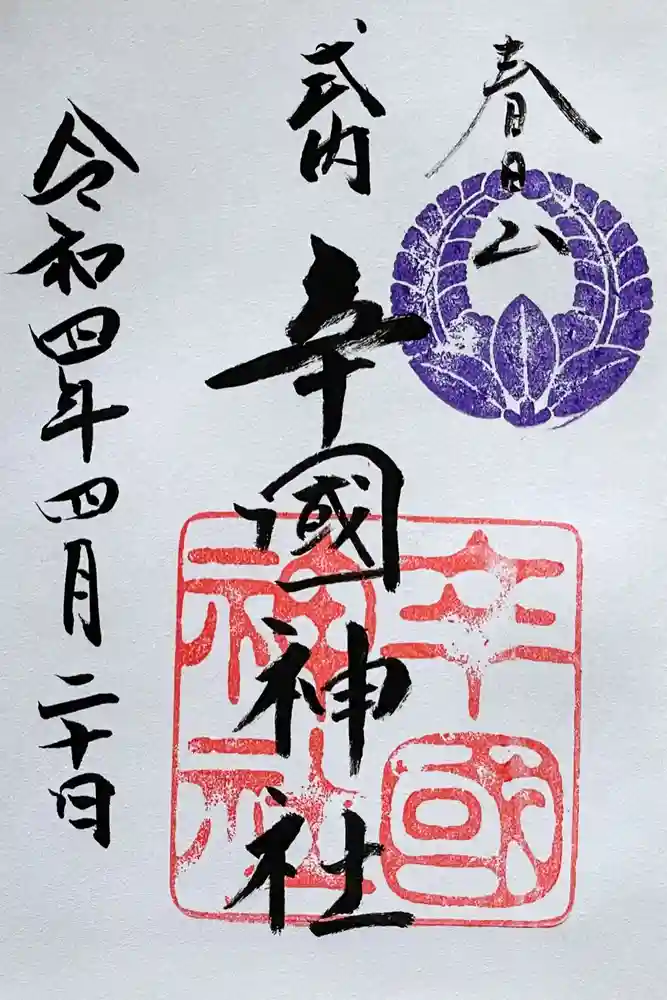 春日山
式内
辛國神社
令和四年四月二十日
辛國神社